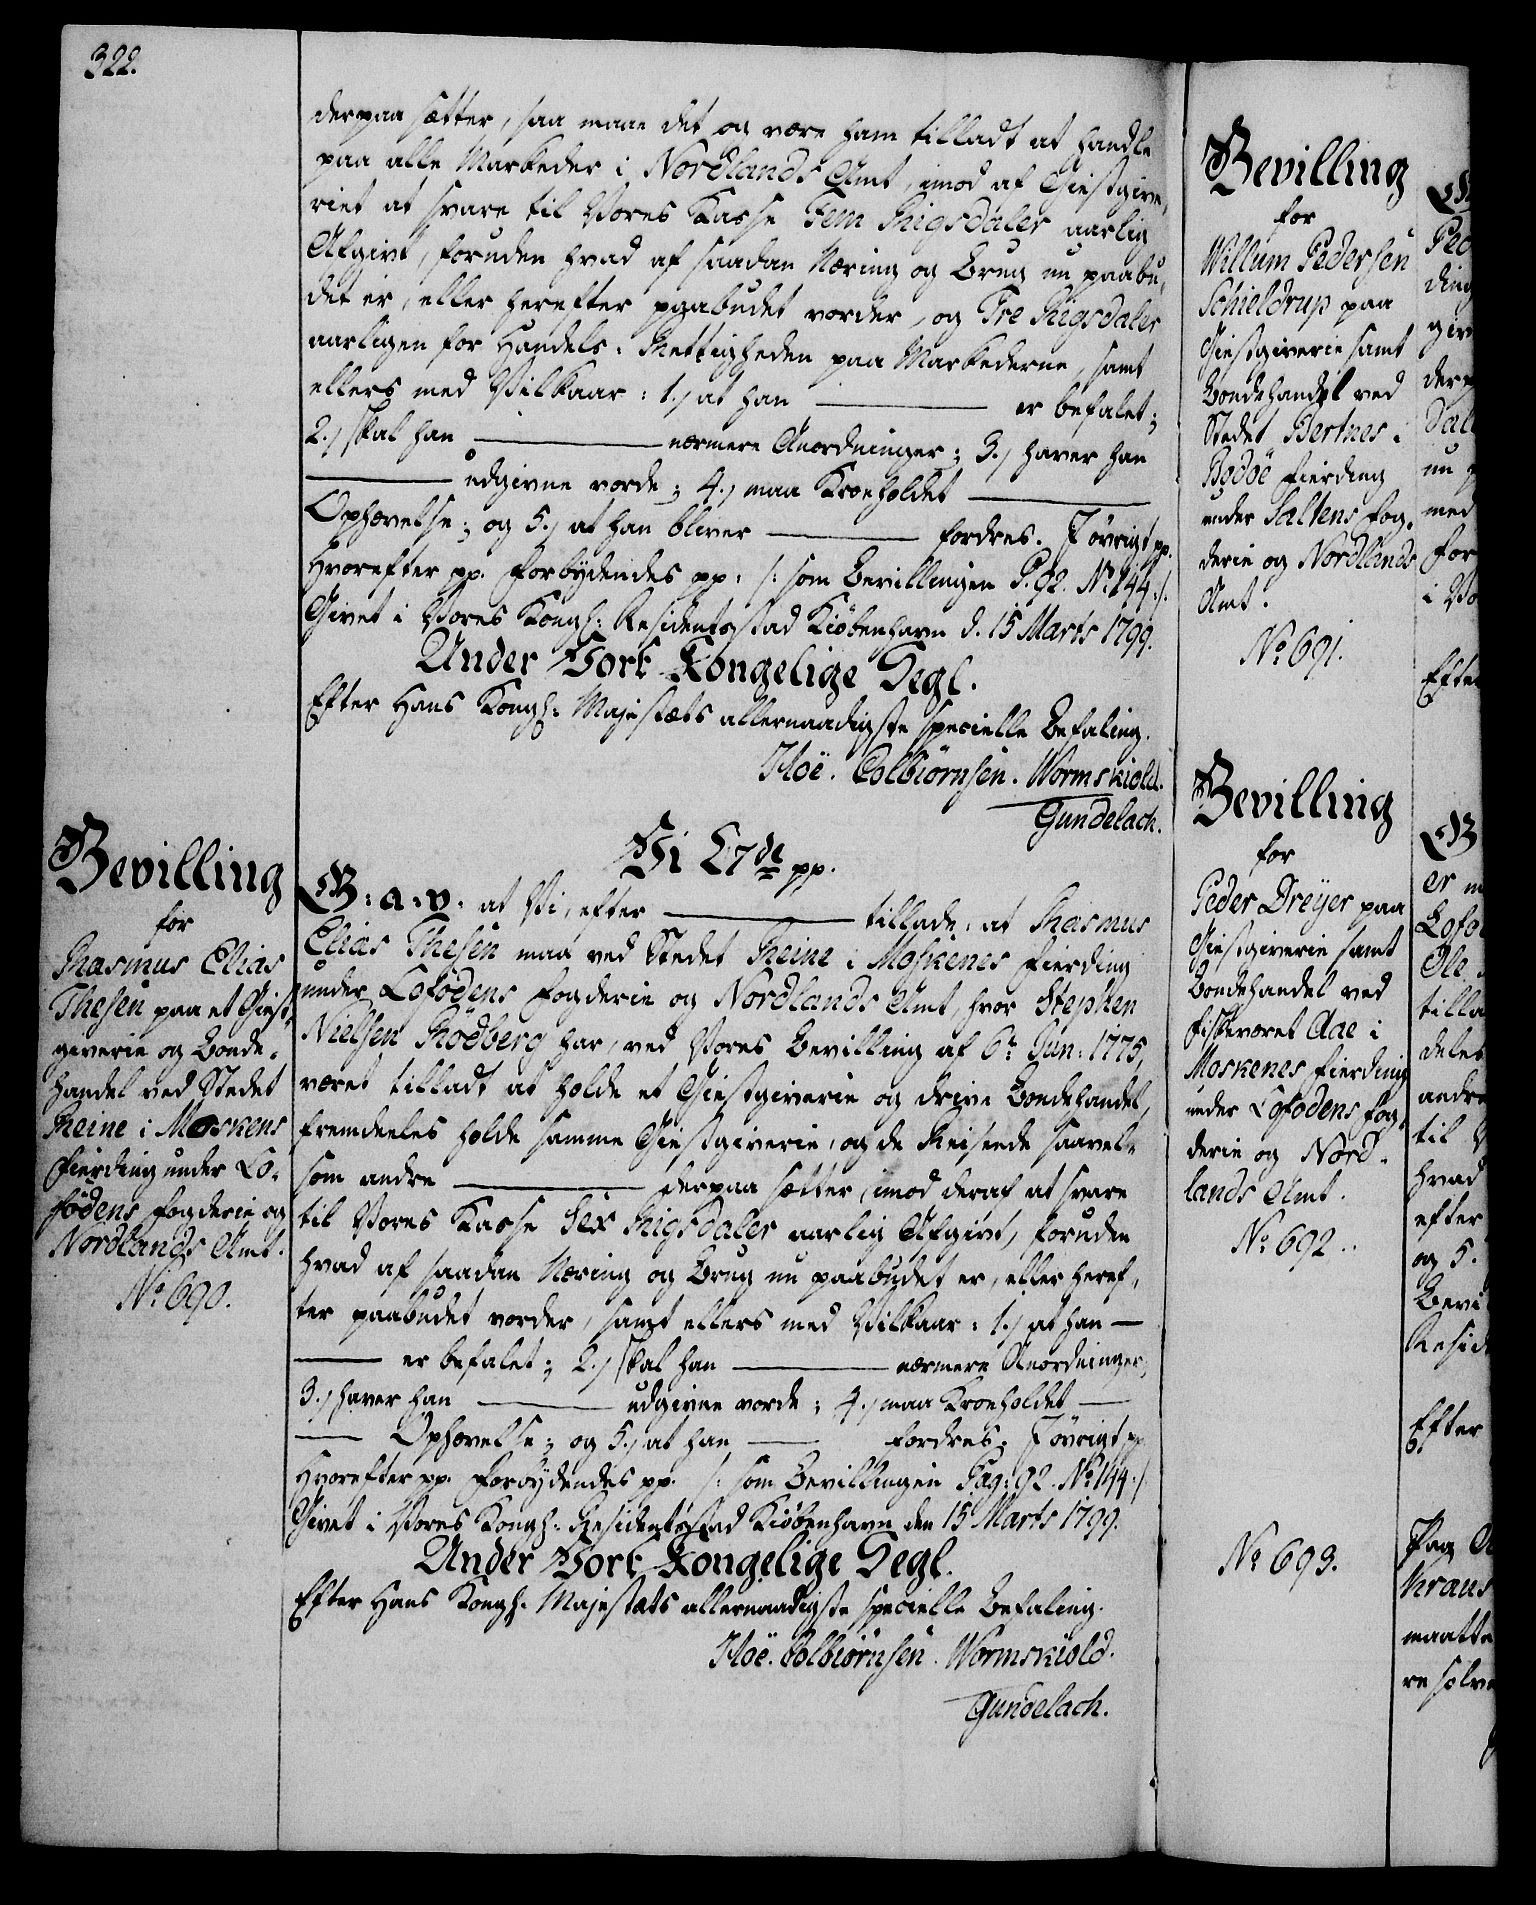 322.
derpaa sætter, saa maae det og være ham tilladt at handle
paa alle Markeder i Nordlands Amt, imod af Giestgive,
riet at svare til Vores Kasse Fem Rigsdaler aarlig
Afgivt, foruden hvad af saadan Næring og Brug nu paabu,
det er, eller herefter paabudet vorder, og Tre Rigsdaler
aarligen for Handels-Rettigheden paa Markederne, samt
ellers med Vilkaar: 1.) at han ——— er befalet;
2.) skal han ——— nærmere Anordninger; 3.) haver han
——— udgivne vorde; 4.) maa Kroeholdet ———
Ophævelse; og 5.) at han bliver ——— fordres. I øvrigt pp.
Hvorefter pp. Forbydendes pp: /: som Bevillingen P. 92. No 144 :/.
Givet i Vores Kongl: Residentsstad Kiøbenhavn d. 15 Marts 1799.
Under Vort Kongelige Segl.
Efter Hans Kongl: Majestæts allernaadigste specielle Befaling.
Hoë. Colbiørnsen. Wormskiold.
Gundelach.
Bevilling
for
Rasmus Elias
Thesen paa et Giest,
giverie og Bonde-
handel ved Stedet
Reine i Moskens
Fierding under Lo-
fodens Fogderie og
Nordlands Amt.
No 690.
Vi C 7de pp.
G: a: v. at Vi, efter ——— tillade: at Rasmus
Elias Thesen maa ved Stedet Reine i Moskenes Fierding
under Lofodens Fogderie og Nordlands Amt, hvor Stephen
Nielsen Rödberg har, ved Vores Bevilling af 6t Jun: 1775,
været tilladt at holde et Giestgiverie og drive Bondehandel,
fremdeeles holde samme Giestgiverie, og de Reisende saavel-
som andre ——— derpaa sætter, imod deraf at svare
til Vores Kasse Sex Rigsdaler aarlig Afgivt, foruden
hvad af saadan Næring og Brug nu paabudet er, eller heref,
ter paabudet vorder, samt ellers med Vilkaar: 1.) at han —
——— er befalet; 2.) skal han ——— nærmere Anordninger;
3.) haver han ——— udgivne vorde; 4.) maa Kroeholdet —
—— Ophævelse; og 5.) at han —— fordres. I øvrigt pp
Hvorefter pp. Forbydendes pp. /: som Bevillingen Pag: 92. No 144 :/
Givet i Vores Kongl: Residentsstad Kiøbenhavn den 15 Marts 1799.
Under Vort Kongelige Segl.
Efter Hans Kongl: Majestæts allernaadigste specielle Befaling.
Hoë. Colbiørnsen. Wormskiold.
Gundelach.
Bevilling
for
Willum Pedersen
Schieldrup paa
Giestgiverie samt
Bondehandel ved
Stedet Bertnes i
Bodöe Fierding
under Saltens Fog,
derie og Nordlands
Amt.
No 691.
Bevilling
for
Peder Dreyer paa
Giestgiverie samt
Bondehandel ved
Fiskeværet Aae i
Moskenes Fierding
under Lofodens Fog,
derie og Nord-
lands Amt.
No 692.
No 693.
ding
giv
derp
nu
med
for
i Vo
Efter
G
er
Lofo
Ole
tilla
deles
andre
til
hvad
efter
og 5.
Bevi
Resid
Efter
Pag
Kraus
maatte
resolve